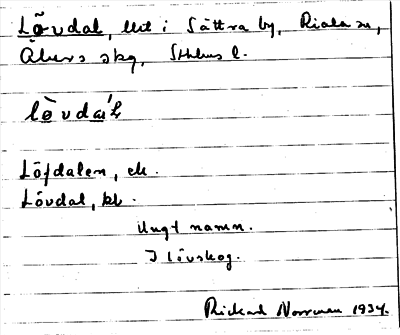 Lövdal, lht i Sättra by, Riala sn,
Åkers skg, Sthlms l.
lö̀vda'l
Löfdalen, ek.
Lövdal, kl.
Ungt namn.
I lövskog.
Rickard Norrman 1934.